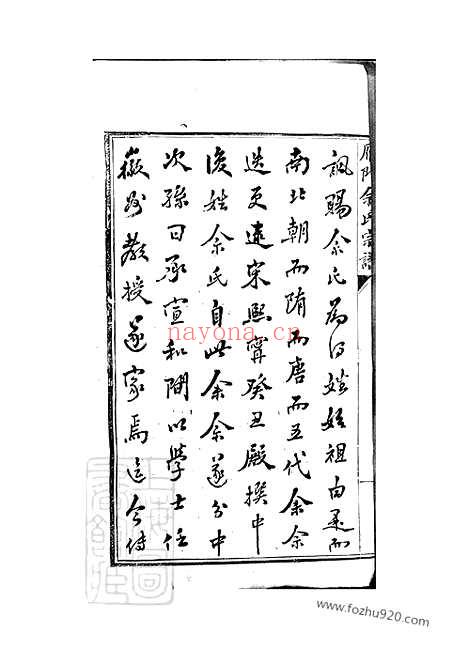 雁門余氏宗譜
諷賜余氏為得姓始祖由是而
南北朝而隋而唐而五代余余
迭更逮宋熙寧癸丑殿撰中
復姓余氏自此余余遂分中
次孫曰承宣和間以學士任
徽州教授遂家焉迄今傳
nayona.cn
www.fozhu920.com